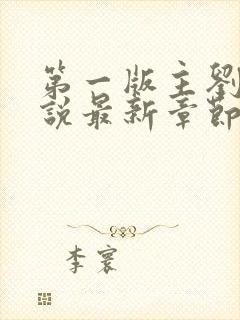 第一版主劉
說最新章節
李寰